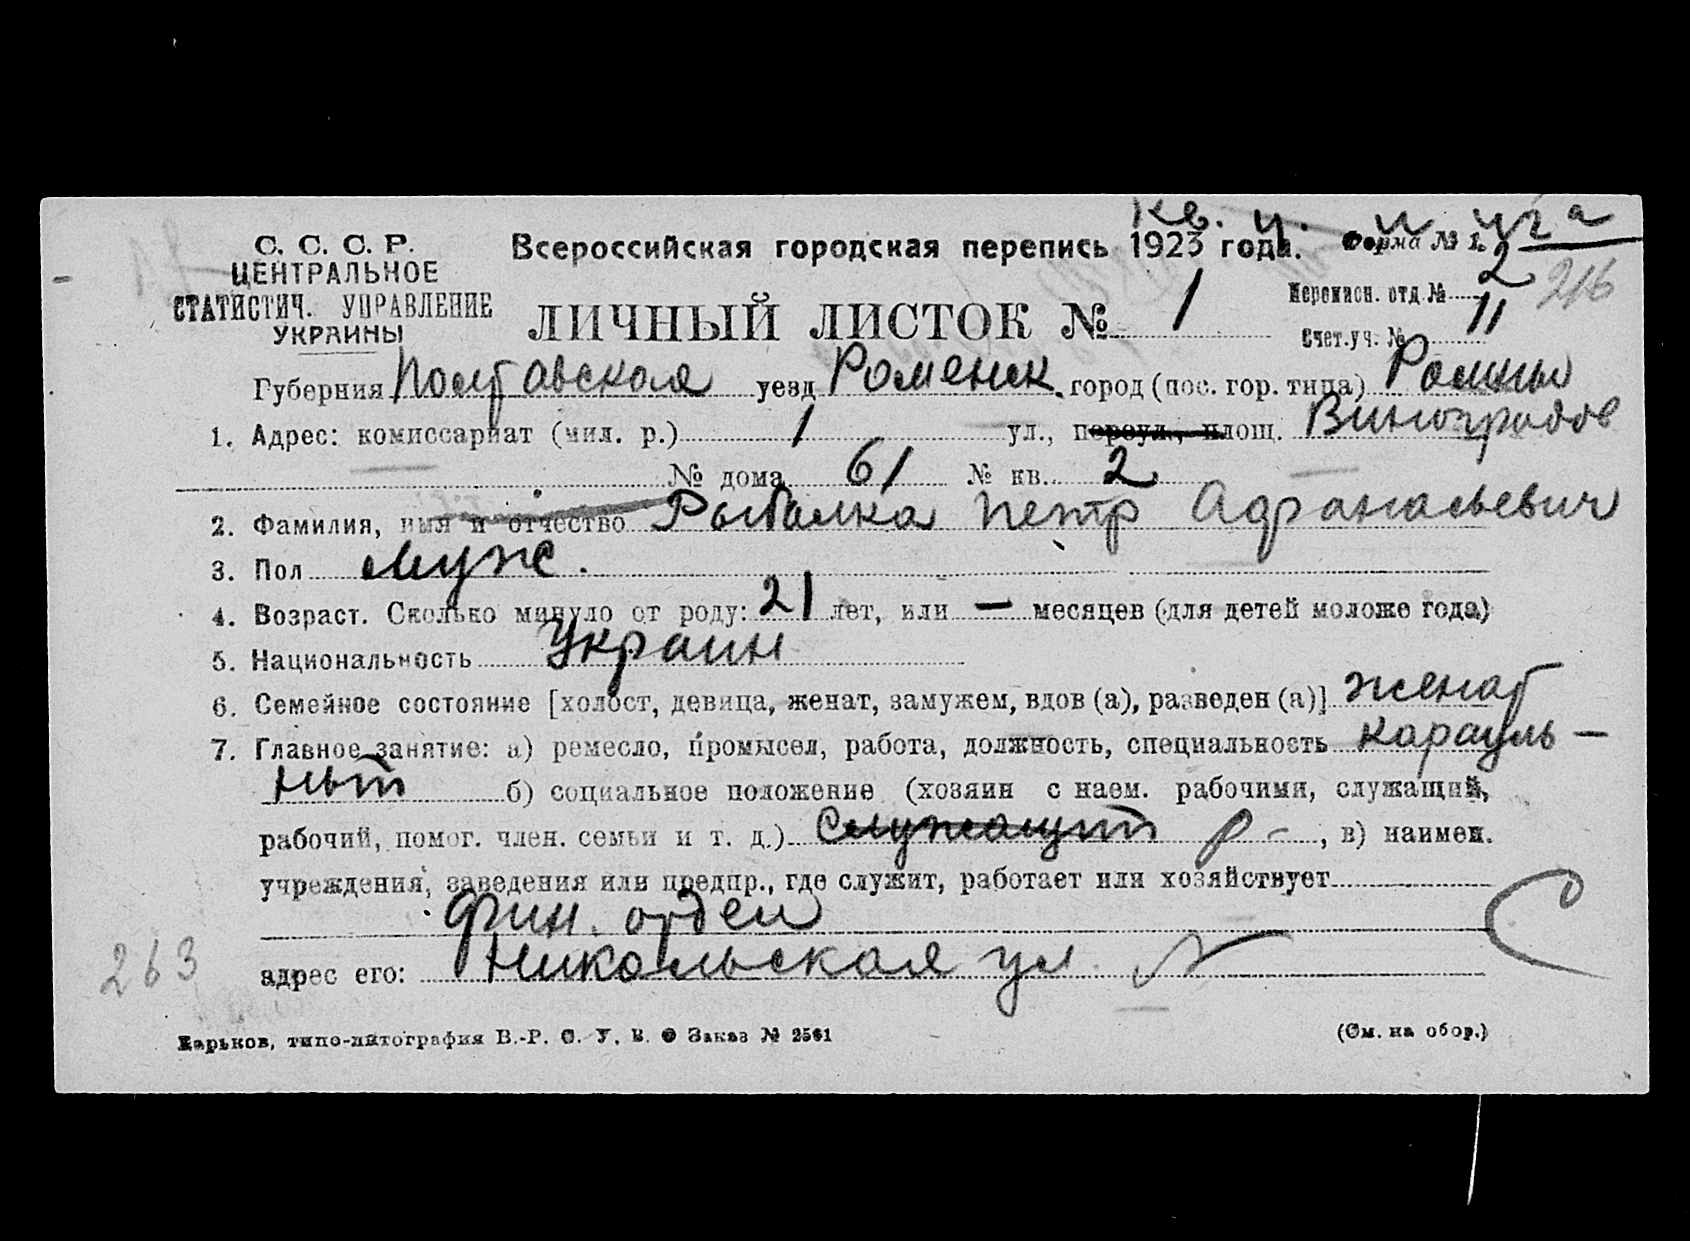 Кв. ч.
С. С. С. Р.
ЦЕНТРАЛЬНОЕ
СТАТИСТИЧ. УПРАВЛЕНИЕ
УКРАИНЫ
Всероссийская городская перепись 1923 года. Форма № 1.
2
Переписн. отд. № 216
ЛИЧНЫЙ ЛИСТОК № 1
Счет. уч. № 11
Губерния Полтавская уезд Роменск. город (пос. гор. типа) Ромны
1. Адрес: комиссариат (мил. р.) 1 ул., переул., площ. Виноградов
№ дома 61 № кв. 2
2. Фамилия, имя и отчество Рыбалка Петр Афанасьевич
3. Пол муж.
4. Возраст. Сколько минуло от роду: 21 лет, или — месяцев (для детей моложе года)
5. Национальность Украин
6. Семейное состояние [холост, девица, женат, замужем, вдов (а), разведен (а)] женат
7. Главное занятие: а) ремесло, промысел, работа, должность, специальность карауль-
ный б) социальное положение (хозяин с наем. рабочими, служащий,
рабочий, помог. член. семьи и т. д.) Служащий р-, в) наимен.
учреждения, заведения или предпр., где служит, работает или хозяйствует
Фин. отдел
263
адрес его: Никольская ул. №
Харьков, типо-литография В.-Р. С. У. В. О Заказ № 2561 (См. на обор.)